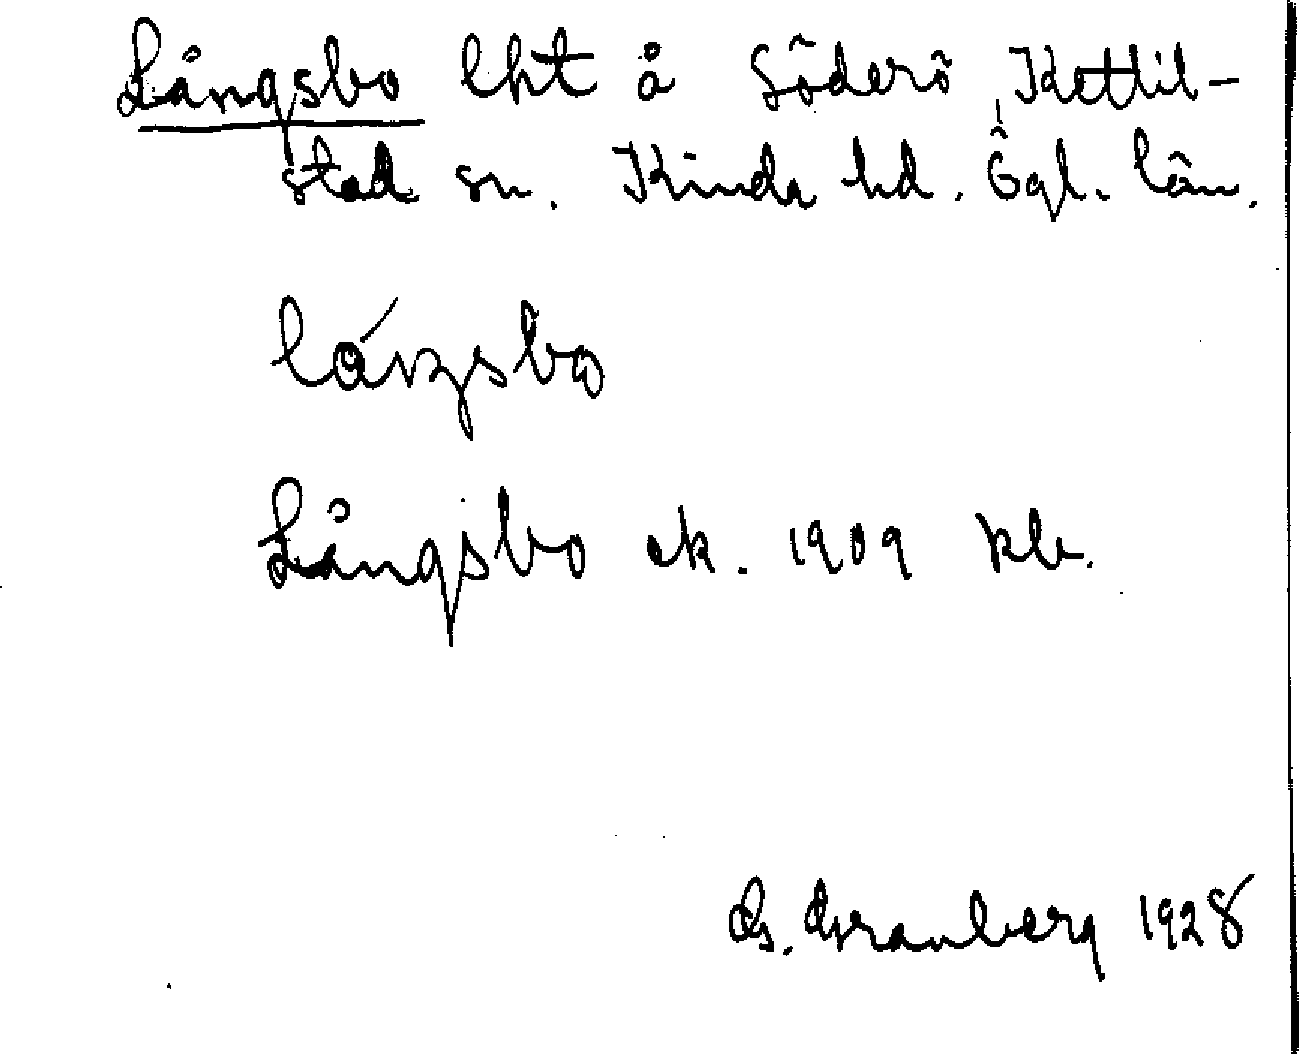 Långsbo lht å Söderö, Kettil-
stad sn. Kinda hd. Ögl. län.
Långsbo ek. 1909 kb.
G. Granberg 1928